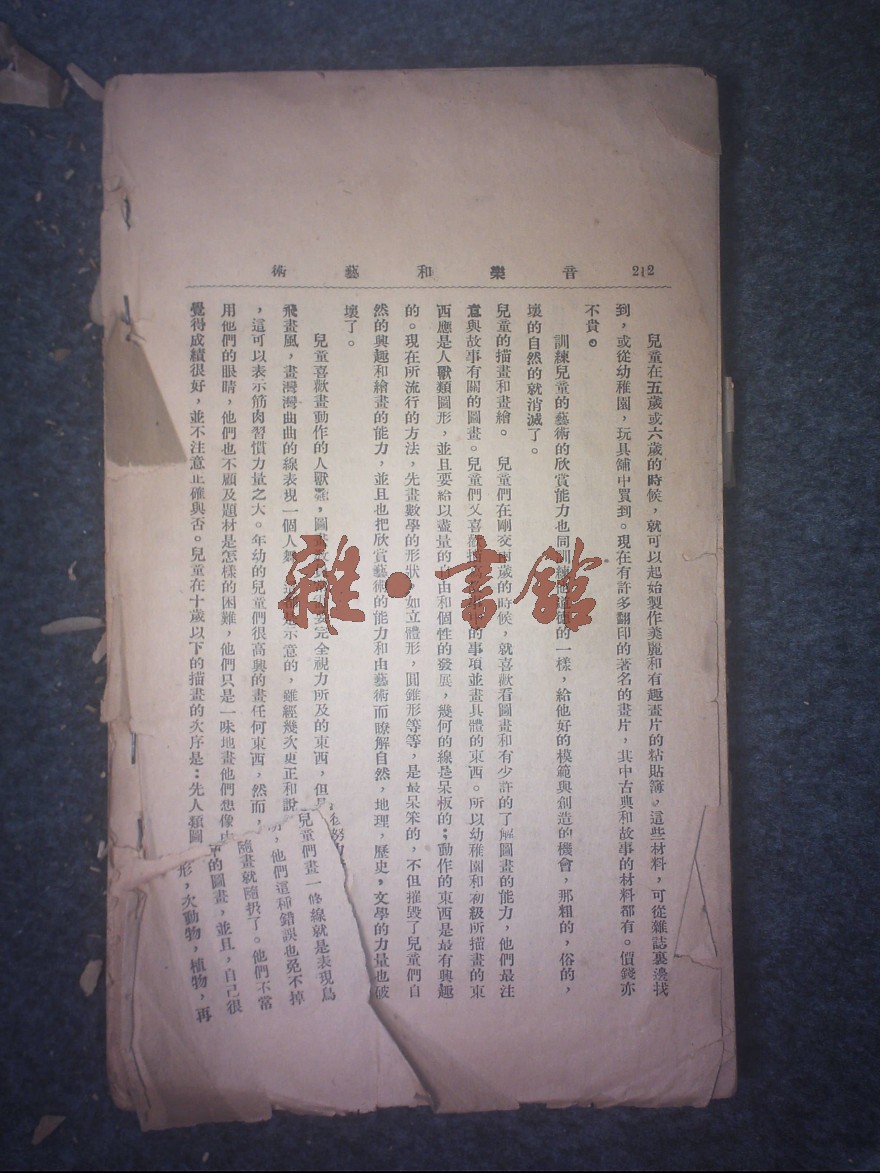 音樂和藝術
212
兒童在五歲或六歲的時候，就可以起始製作美麗和有趣畫片的粘貼簿。這些材料，可從雜誌裏邊找
到，或從幼稚園，玩具舖中買到。現在有許多翻印的著名的畫片，其中古典和故事的材料都有。價錢亦
不貴。
訓練兒童的藝術的欣賞能力也同訓練他道德的一樣，給他好的模範與創造的機會，那粗的，俗的，
壞的自然的就消滅了。
兒童的描畫和畫繪。 兒們在剛交兩歲的時候，就喜歡看圖畫和有少許的了解圖畫的能力，他們最注
意與故事有關的圖畫。兒童們又喜的事項並畫具體的東西。所以幼稚園和初級所描畫的東
西應是人獸類圖形，並且要給以盡量的自由和個性的發展，幾何的線是呆板的；動作的東西是最有興趣
的。現在所流行的方法，先畫數學的形狀，如立體形，圓錐形等等，是最呆笨的，不但摧毀了兒童們自
然的興趣和繪畫的能力，並且也把欣賞藝術的能力和由藝術而瞭解自然，地理，歷史，文學的力量也破
壞了。
兒童喜歡畫動作的人獸類，圖畫完全視力所及的東西，但兒童們畫一條線就是表現鳥
飛畫風，畫灣灣曲曲的線表現一個人是示意的，雖經幾次更正和說，他們這種錯誤也免不掉
，這可以表示筋肉習慣力量之大。年幼的兒童們很高興的畫任何東西，然而，隨畫就隨扔了。他們不常
用他們的眼睛，他們也不顧及題材是怎樣的困難，他們只是一味地畫他們想像的圖畫，並且，自己很
覺得成績很好，並不注意正確與否。兒童在十歲以下的描畫的次序是：先人類圖形，次動物，植物，再
雜·書館